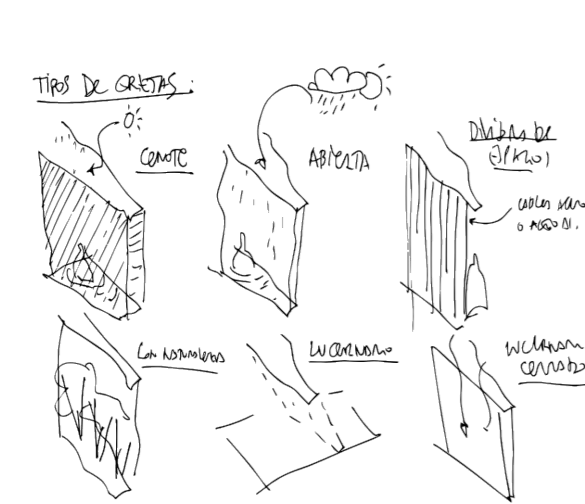 TIPOS DE GRIETAS:
CENOTE
ABIERTA
DIVISORA DE
ESPACIOS
CABLES ACERO
O ACERO
CON NATURALEZA
LUCERNARIO
LUCERNARIO
CERRADO